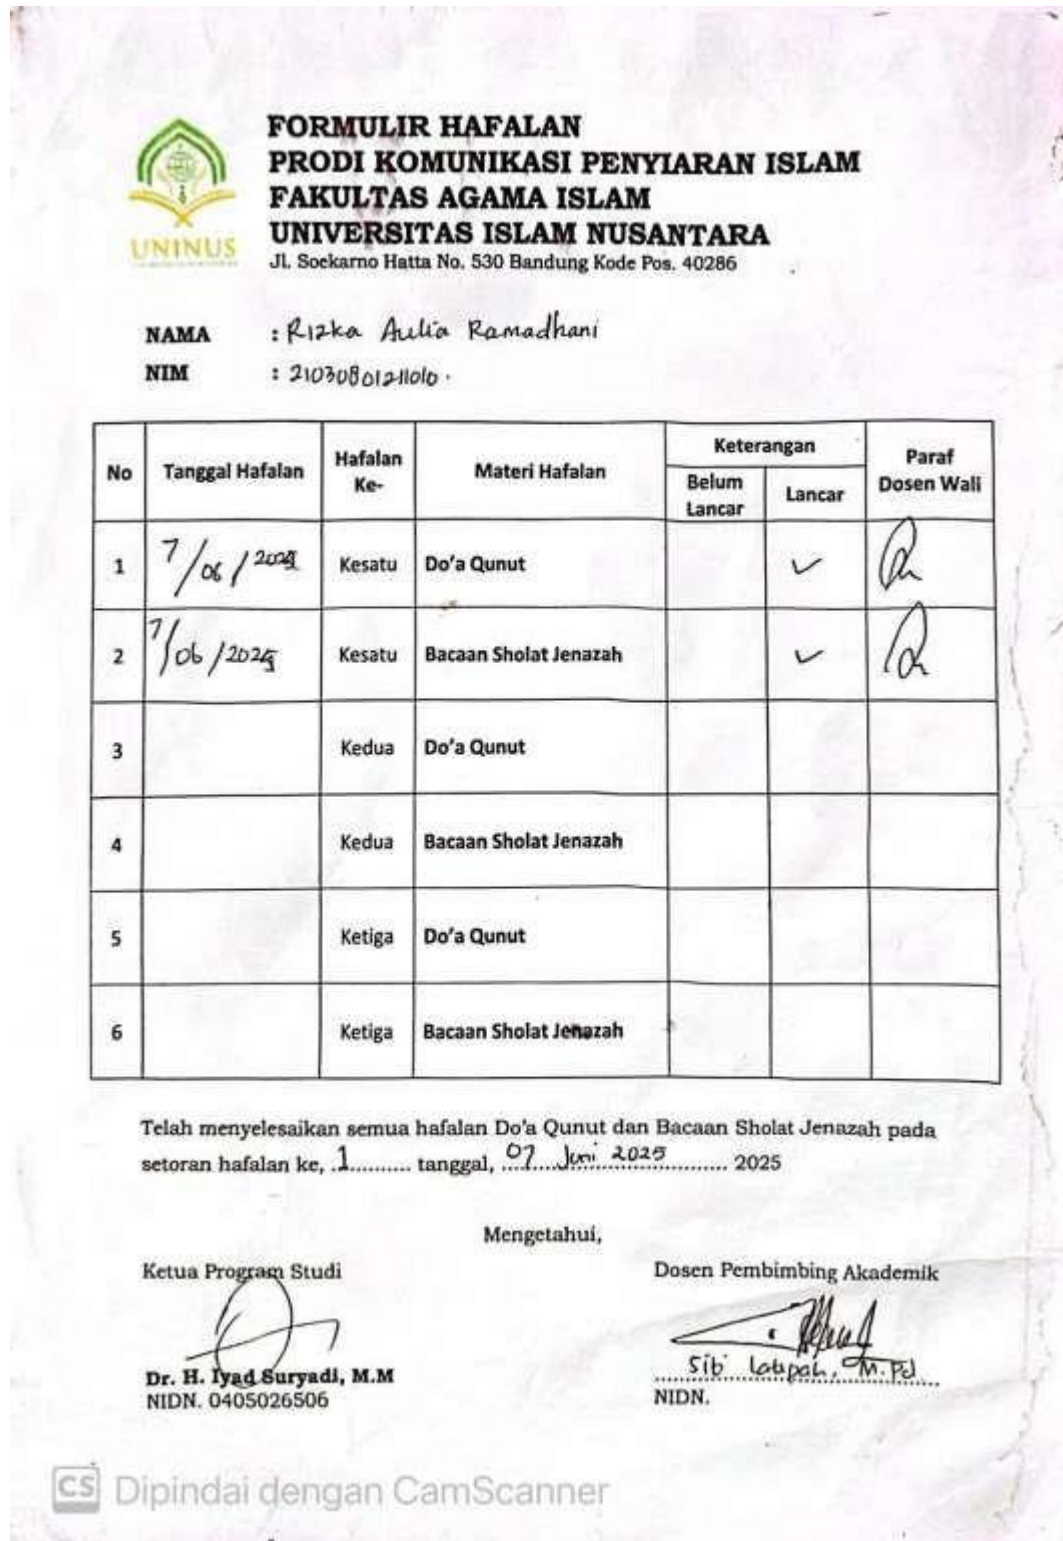 FORMULIR HAFALAN
PRODI KOMUNIKASI PENYIARAN ISLAM
FAKULTAS AGAMA ISLAM
UNIVERSITAS ISLAM NUSANTARA
Jl. Soekarno Hatta No. 530 Bandung Kode Pos. 40286
UNINUS
NAMA : Rizka Aulia Ramadhani
NIM : 21030801211010.
No Tanggal Hafalan Hafalan Ke- Materi Hafalan Keterangan Belum Lancar Lancar Paraf Dosen Wali
1 7/06/2025 Kesatu Do'a Qunut ✓
2 7/06/2025 Kesatu Bacaan Sholat Jenazah ✓
3 Kedua Do'a Qunut
4 Kedua Bacaan Sholat Jenazah
5 Ketiga Do'a Qunut
6 Ketiga Bacaan Sholat Jenazah
Telah menyelesaikan semua hafalan Do'a Qunut dan Bacaan Sholat Jenazah pada
setoran hafalan ke, .1.......... tanggal, ..07 Juni 2025.......... 2025
Mengetahui,
Ketua Program Studi Dosen Pembimbing Akademik
Dr. H. Iyad Suryadi, M.M
NIDN. 0405026506
M.Pd
NIDN.
CS Dipindai dengan CamScanner